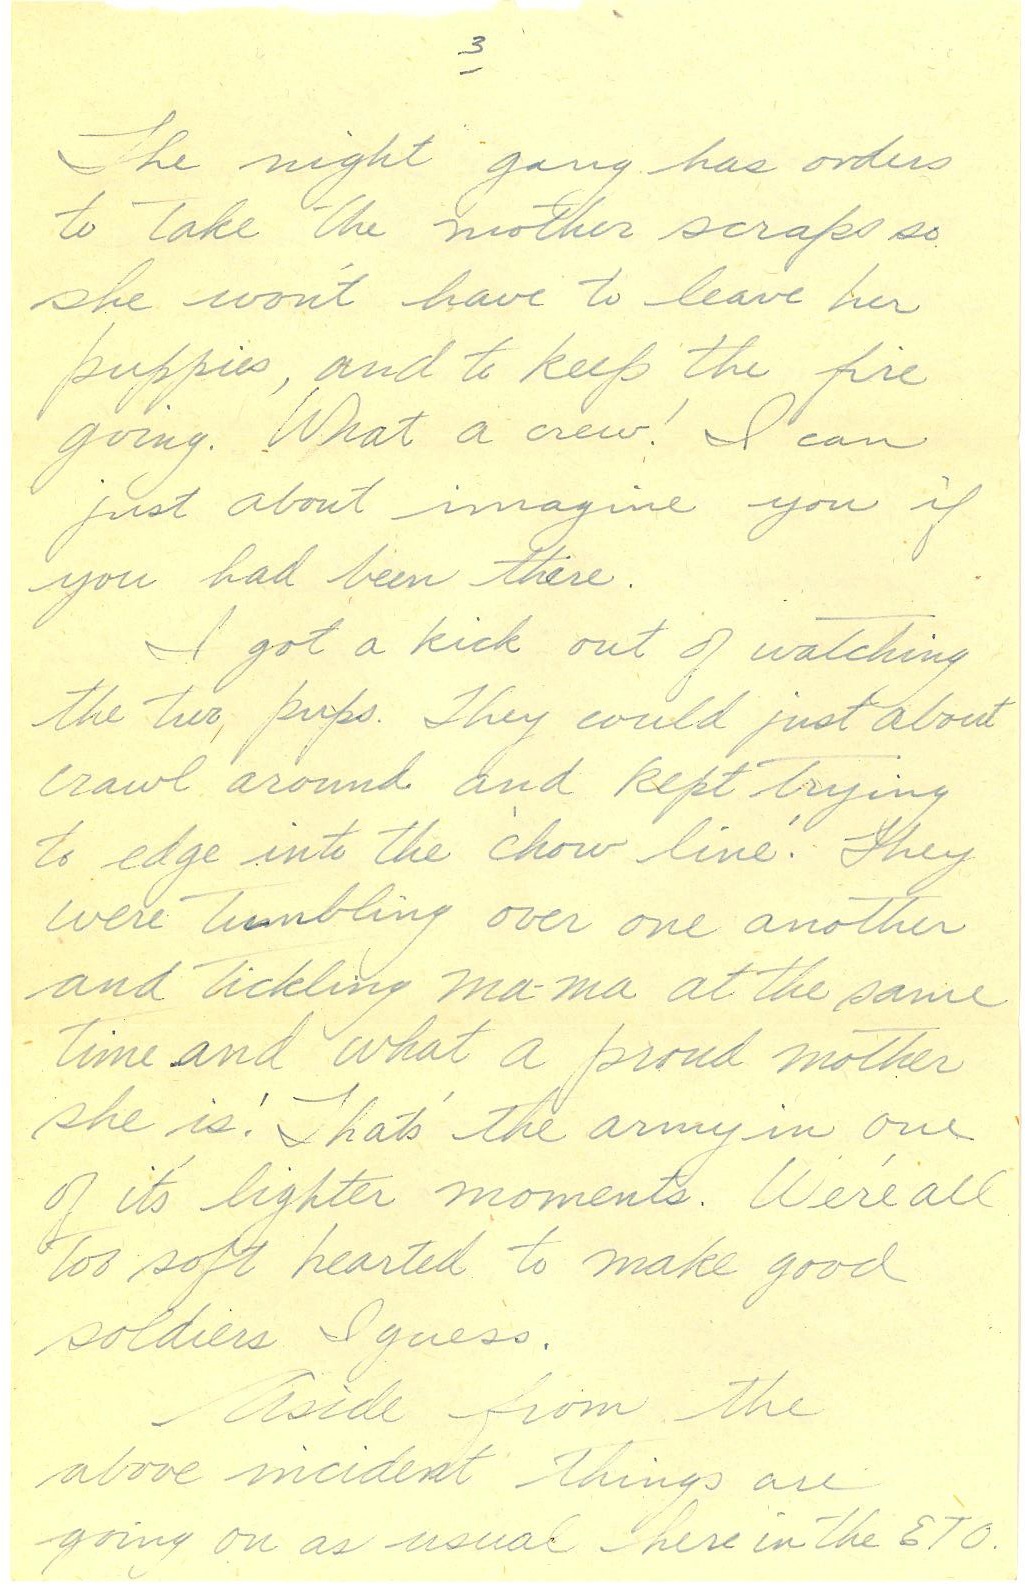 3
The night gang has orders
to take the mother scraps so
she won't have to leave her
puppies, and to keep the fire
going. What a crew! I can
just about imagine you if
you had been there.
I got a kick out of watching
the two pups. They could just about
crawl around and kept trying
to edge into the 'chow line'. They
were tumbling over one another
and tickling ma-ma at the same
time and what a proud mother
she is! That's the army in one
of it's lighter moments. We're all
too soft hearted to make good
soldiers I guess.
Aside from the
above incident things are
going on as usual here in the ETO.